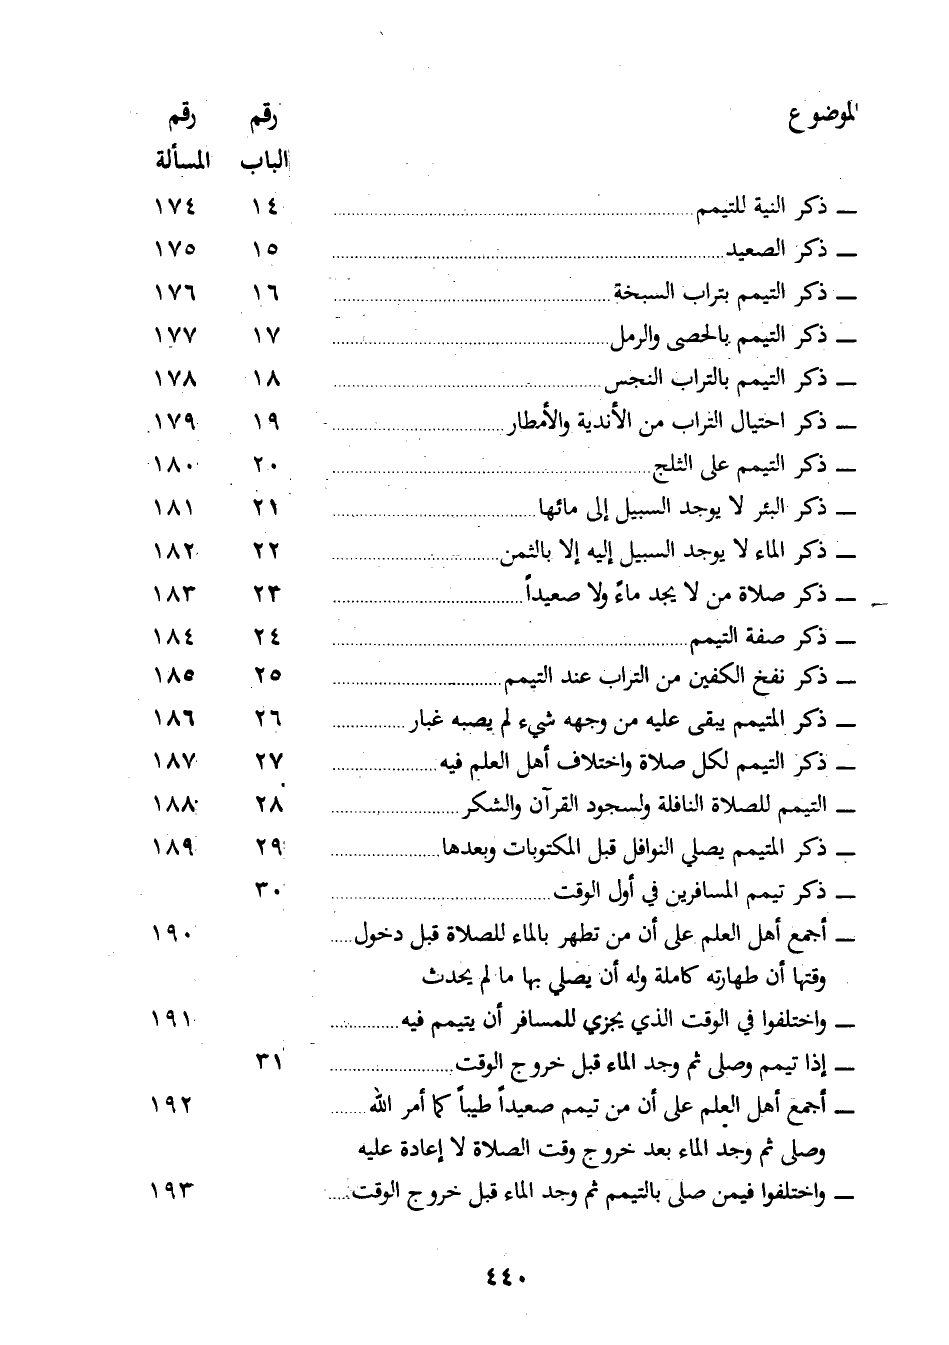 الموضوع رقم رقم
الباب المسألة
ــ ذكر النية للتيمم ١٤ ١٧٤
ــ ذكر الصعيد ١٥ ١٧٥
ــ ذكر التيمم بتراب السبخة ١٦ ١٧٦
ــ ذكر التيمم بالحصى والرمل ١٧ ١٧٧
ــ ذكر التيمم بالتراب النجس ١٨ ١٧٨
ــ ذكر احتيال التراب من الأندية والأمطار ١٩ ١٧٩
ــ ذكر التيمم على الثلج ٢٠ ١٨٠
ــ ذكر البئر لا يوجد السبيل إلى مائها ٢١ ١٨١
ــ ذكر الماء لا يوجد السبيل إليه إلا بالثمن ٢٢ ١٨٢
ــ ذكر صلاة من لا يجد ماءً ولا صعيداً ٢٣ ١٨٣
ــ ذكر صفة التيمم ٢٤ ١٨٤
ــ ذكر نفخ الكفين من التراب عند التيمم ٢٥ ١٨٥
ــ ذكر المتيمم يبقى عليه من وجهه شيء لم يصبه غبار ٢٦ ١٨٦
ــ ذكر التيمم لكل صلاة واختلاف أهل العلم فيه ٢٧ ١٨٧
ــ التيمم للصلاة النافلة ولسجود القرآن والشكر ٢٨ ١٨٨
ــ ذكر المتيمم يصلي النوافل قبل المكتوبات وبعدها ٢٩ ١٨٩
ــ ذكر تيمم المسافرين في أول الوقت ٣٠
ــ أجمع أهل العلم على أن من تطهر بالماء للصلاة قبل دخول ١٩٠
وقتها أن طهارته كاملة وله أن يصلي بها ما لم يحدث
ــ واختلفوا في الوقت الذي يجزي للمسافر أن يتيمم فيه ١٩١
ــ إذا تيمم وصلى ثم وجد الماء قبل خروج الوقت ٣١
ــ أجمع أهل العلم على أن من تيمم صعيداً طيباً كما أمر الله ١٩٢
وصلى ثم وجد الماء بعد خروج وقت الصلاة لا إعادة عليه
ــ واختلفوا فيمن صلى بالتيمم ثم وجد الماء قبل خروج الوقت ١٩٣
٤٤٠